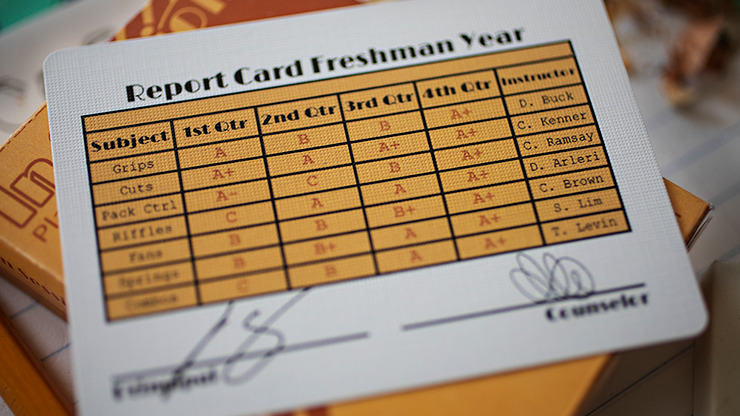 Report Card Freshman Year
Subject 1st Qtr 2nd Qtr 3rd Qtr 4th Qtr Instructor
Grips A B B A+ D. Buck
Cuts A+ A A+ A+ C. Kenner
Pack Ctrl A- C B A+ C. Ramsay
Riffles C A A A+ D. Arleri
Fans B B B+ A+ C. Brown
Springs B B+ A A+ S. Lim
Combos C B B A+ T. Levin
Counselor